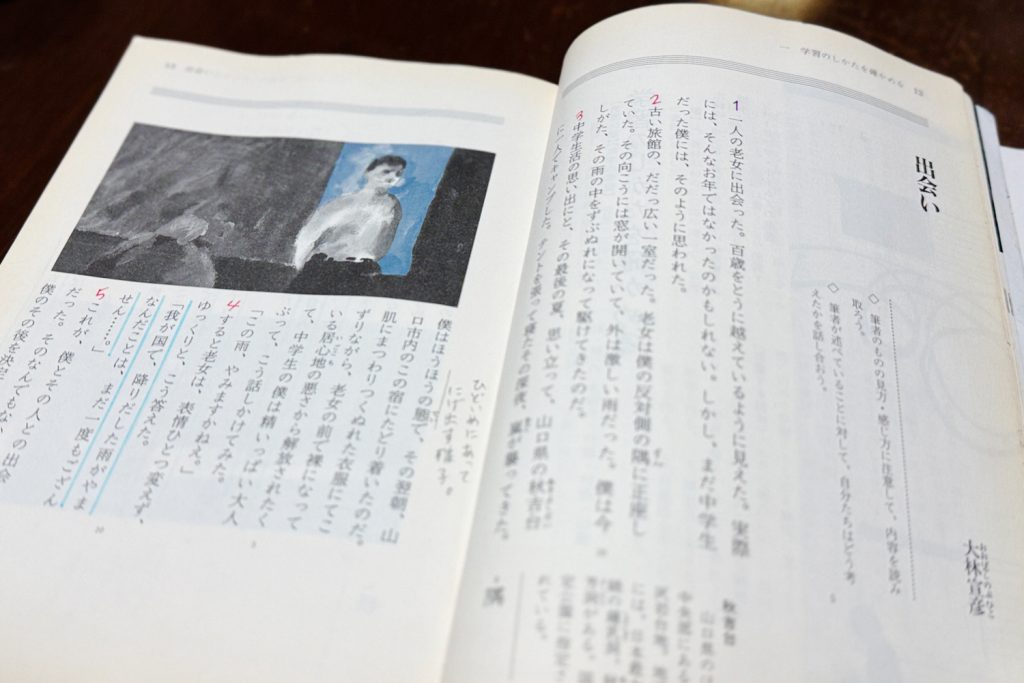 一 学習のしかたを確かめる 12
出会い
大林宣彦
おおばやしのぶひこ
◇ 筆者のものの見方・感じ方に注意して、内容を読み
取ろう。
◇ 筆者が述べていることに対して、自分たちはどう考
えたかを話し合おう。
5
1 一人の老女に出会った。百歳をとうに越えているように見えた。実際
には、そんなお年ではなかったのかもしれない。しかし、まだ中学生
だった僕には、そのように思われた。
2 古い旅館の、だだっ広い一室だった。老女は僕の反対側の隅に正座し
ていた。その向こうには窓が開いていて、外は激しい雨だった。僕は今
しがた、その雨の中をずぶぬれになって駆けてきたのだ。
3 中学生活の思い出にと、その最後の夏、思い立って、山口県の秋吉台
に一人でキャンプした。テントを張って寝たその深夜、嵐が襲ってきた。
秋吉台
山口県の
中央部にある
隅
僕はほうほうの態で、その翌朝、山
口市内のこの宿にたどり着いたのだ。
肌にまつわりつくぬれた衣服にてこ
ずりながら、老女の前で裸になって
いる居心地の悪さから解放されたく
て、中学生の僕は精いっぱい大人
ぶって、こう話しかけてみた。
「この雨、やみますかねえ。」
4 すると老女は、表情ひとつ変えず、
ゆっくりと、こう答えた。
「我が国で、降りだした雨がやま
なんだことは、まだ一度もござん
せん……。」
5 これが、僕とその人との出会
だった。そのなんでもない出会
僕のその後を決定
ひどいめにあって
にげ出す様子。
5
10